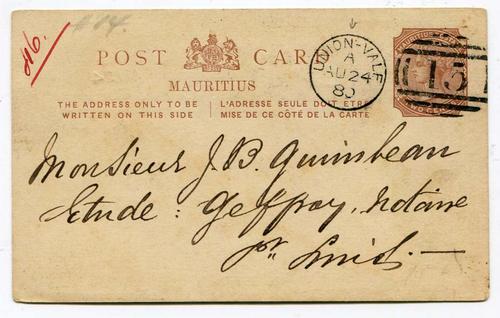 46.
POST CARD
MAURITIUS
THE ADDRESS ONLY TO BE WRITTEN ON THIS SIDE
L'ADRESSE SEULE DOIT ETRE MISE DE CE CÔTÉ DE LA CARTE
UNION-VALE
A
AU 24
80
MAURITIUS
Monsieur J. B. Quimbeau
Etude : Geffroy, Notaire
Pt. Louis.